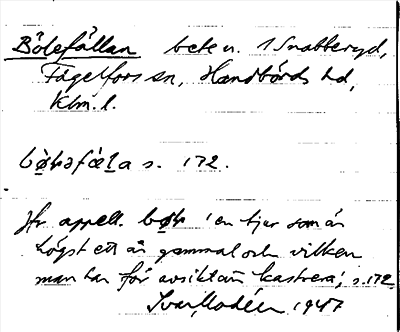 Bölefållan beten. 1 Snatteryd,
Fagelfors sn, Handbörds hd,
Klm. l.
s. 172.
Jfr appell. 'en tjur som är
högst ett år gammal och vilken
man har för avsikt att kastrera', s. 172.
Ivar Modéer 1947